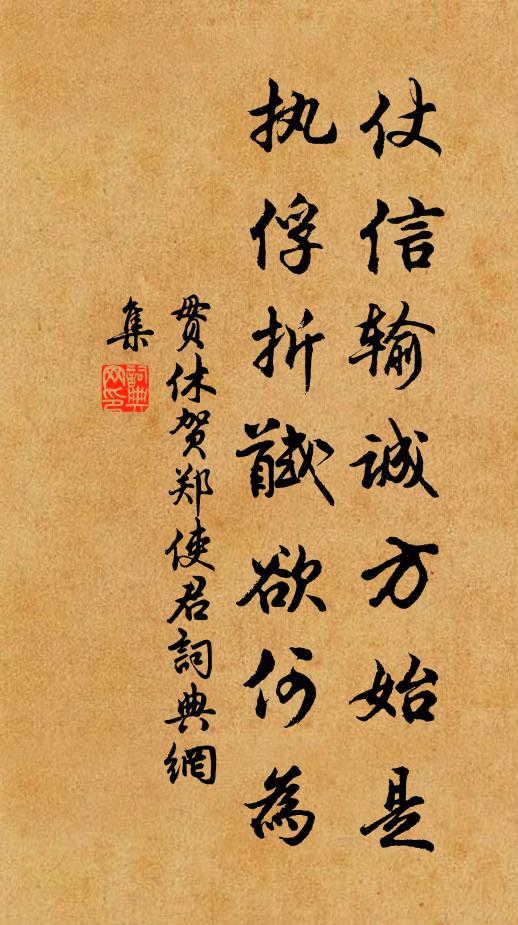 仗信输诚方始是
执俘折馘欲何為
贯休贺郑使君詞典網
集
詞典網印